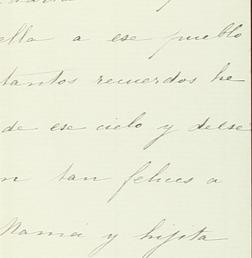 ella a ese pueblo
tantos recuerdos he
de ese cielo y de ese
n tan felices a
Mamá y hijita